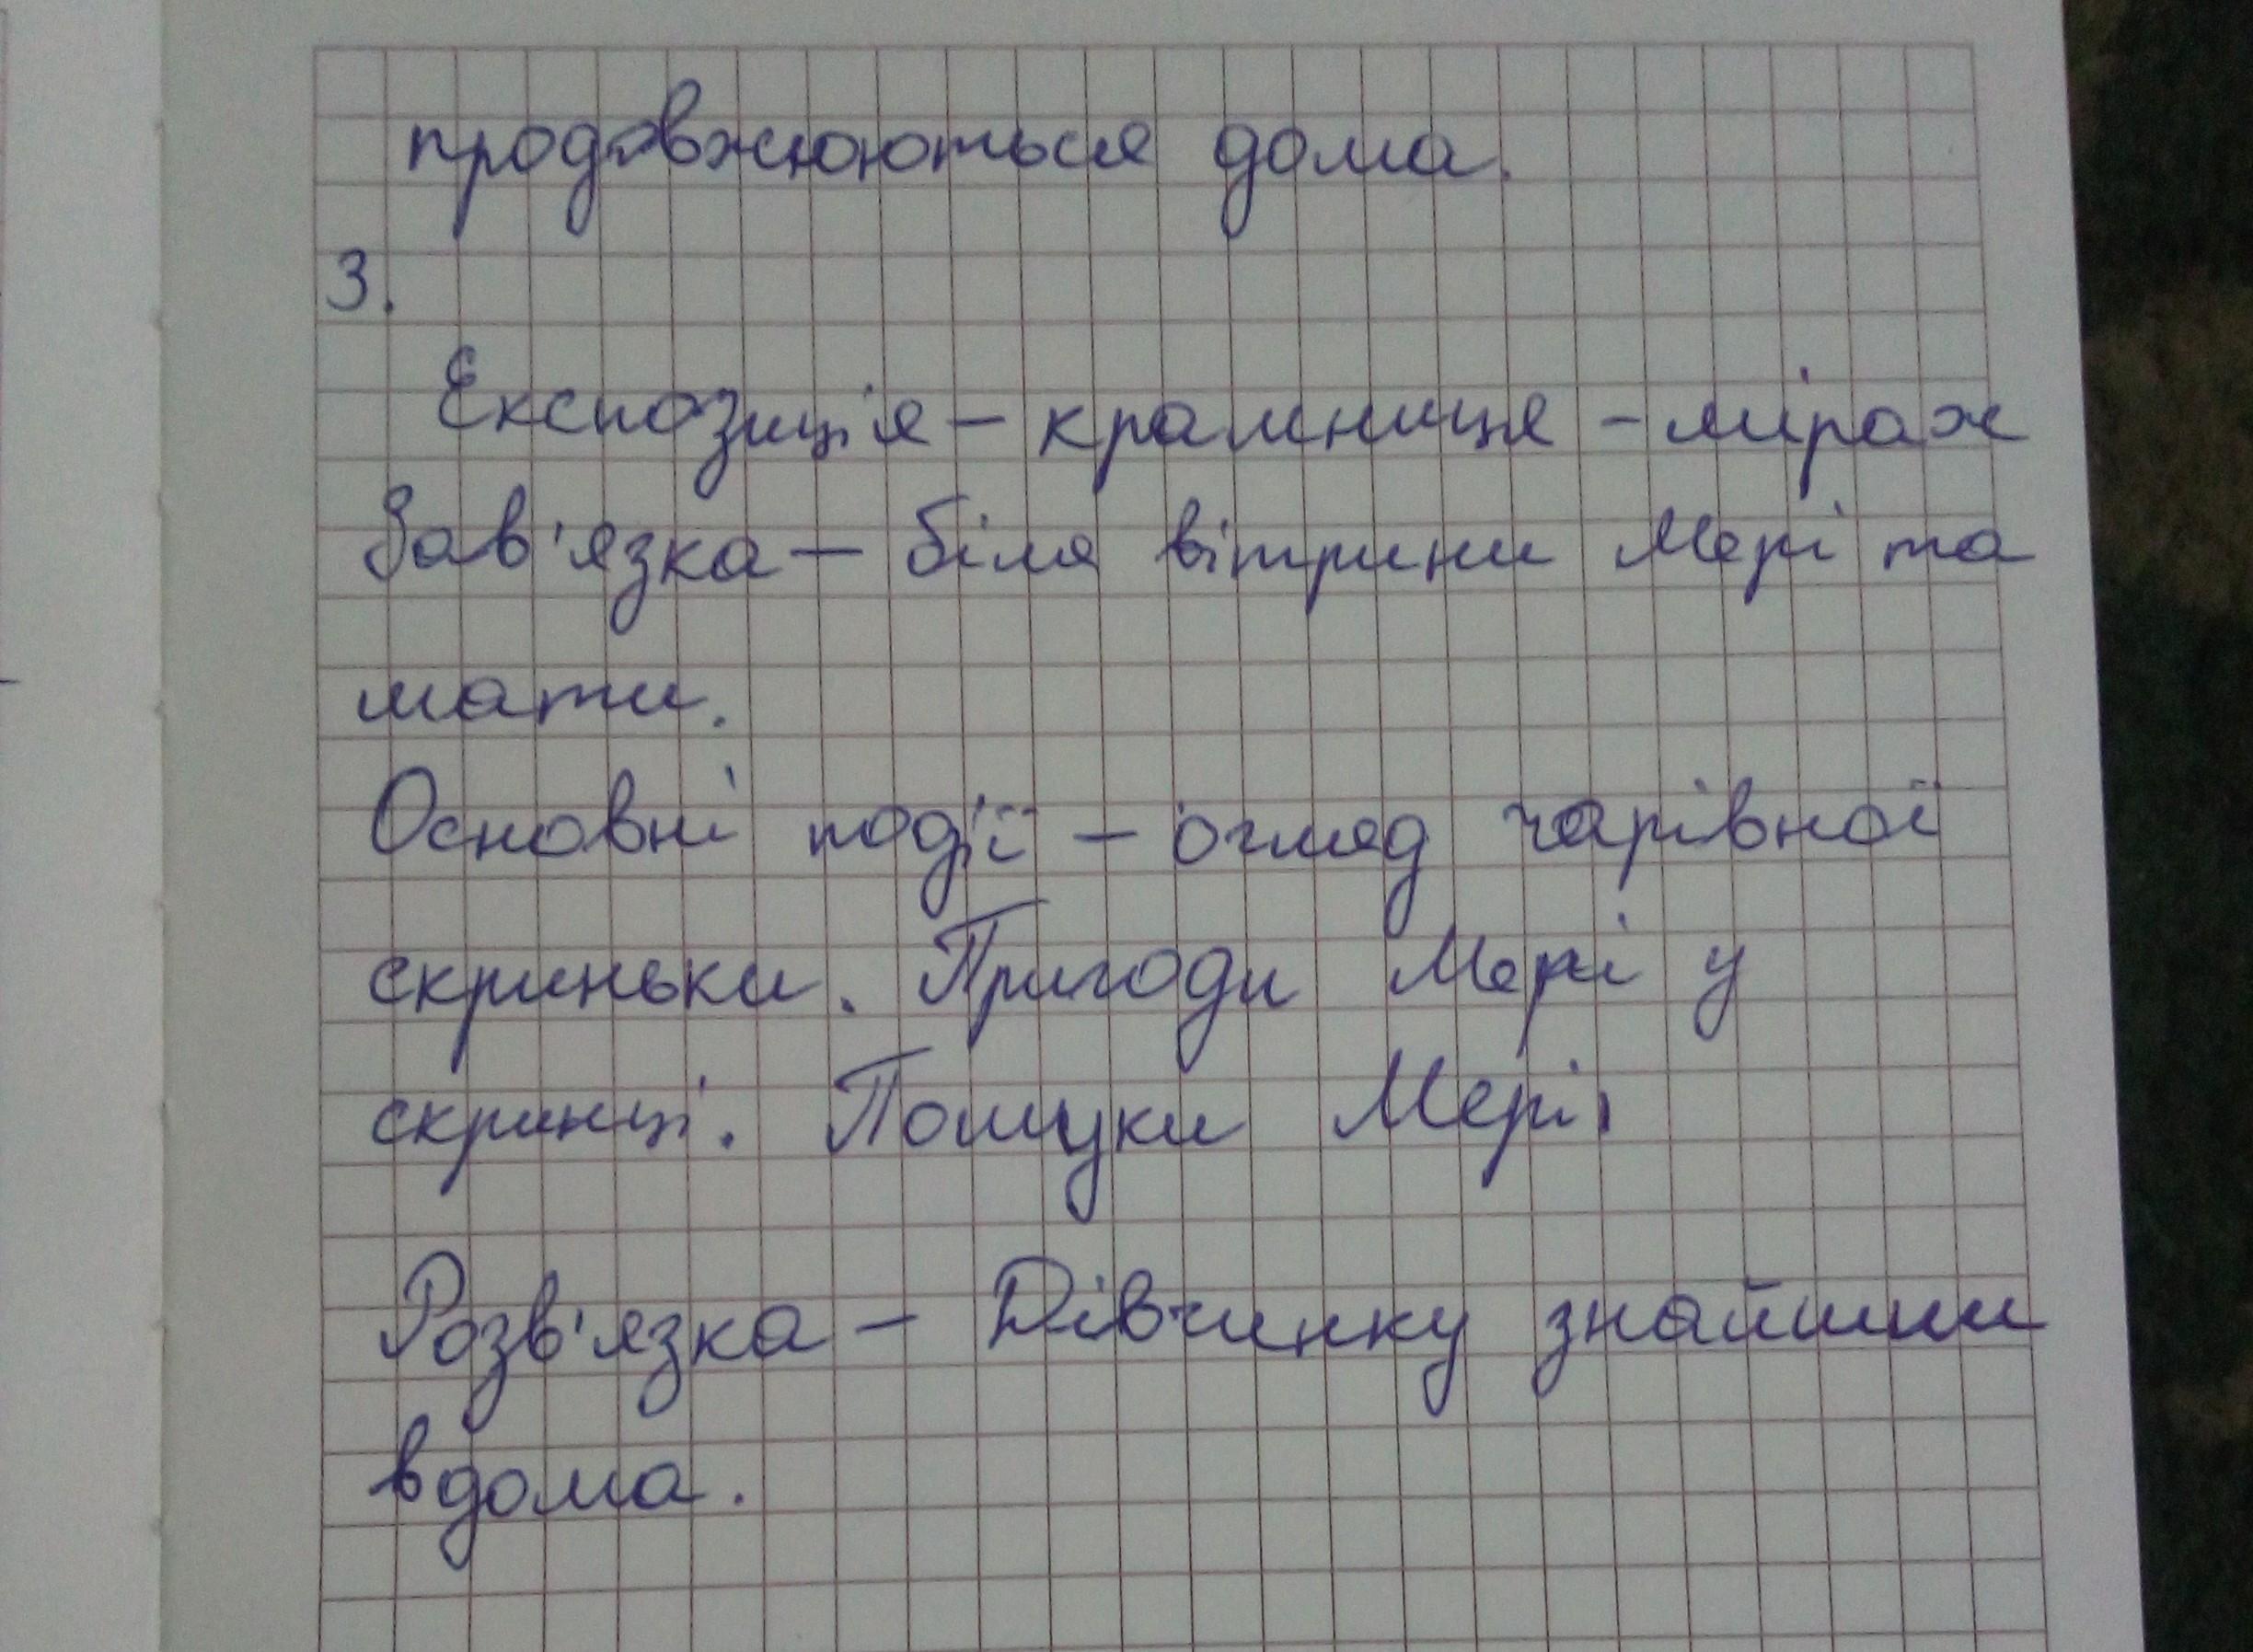 продовжуються дома.
3.
Експозиція – крамниця – міраж
Зав'язка – біля вітрини Мері та
мати.
Основні події – огляд чарівної
скриньки. Пригоди Мері у
скринці. Пошуки Мері.
Розв'язка – Дівчинку знайшли
вдома.